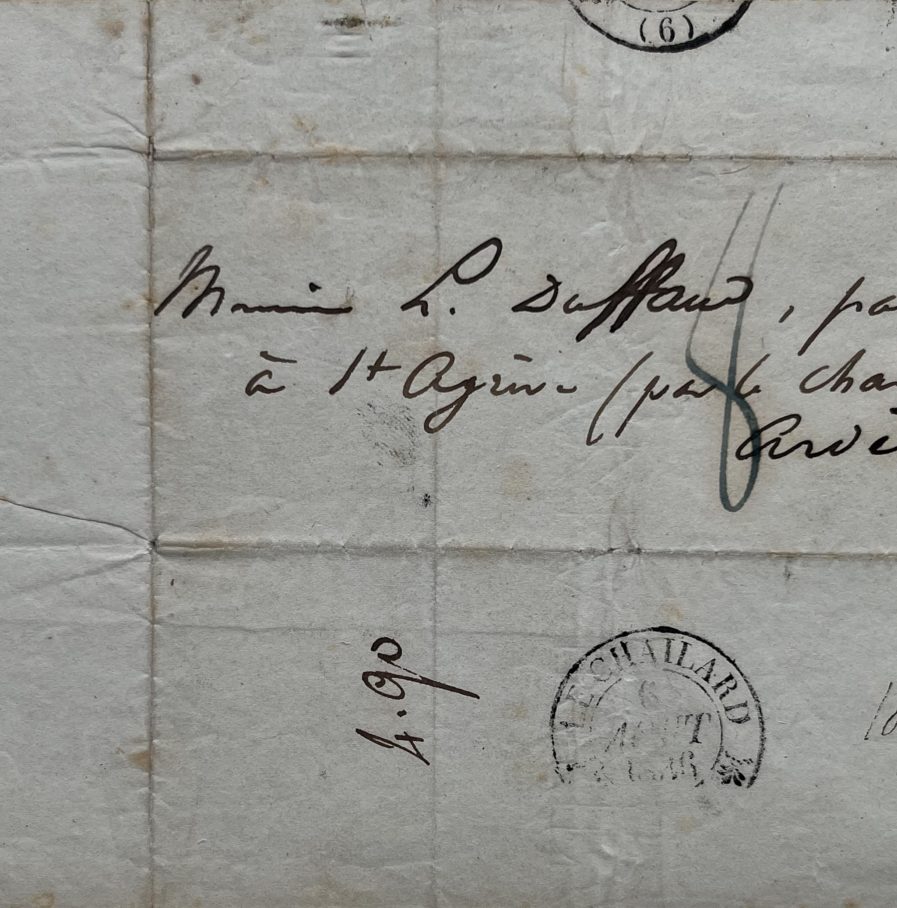 (6)
L. Duffaud, pa
à St Agrève (par le cha
Ardè
4.90
LE CHAILARD
6
AOUT